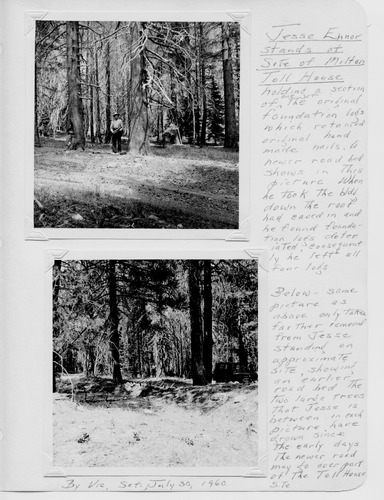 Jesse Ennor
stands at
Site of Milton
Toll House
holding a section
of, the original
foundation logs
which retained
original hand
made nails. A
newer road bed
shows in this
picture. When
he took the bldg
down the roof
had caved in and
he found founda-
tion logs deter-
iated consequent
ly he left all
four logs
Below - same
picture as
above only taken
farther removed
from Jesse
standing on
approximate
site, showing
an earlier
road bed. The
two large trees
That Jesse is
between in each
picture, have
grown since
the early days
The newer road
may be over part
of The Toll House
Site
By Vie, Sat., July 30, 1960